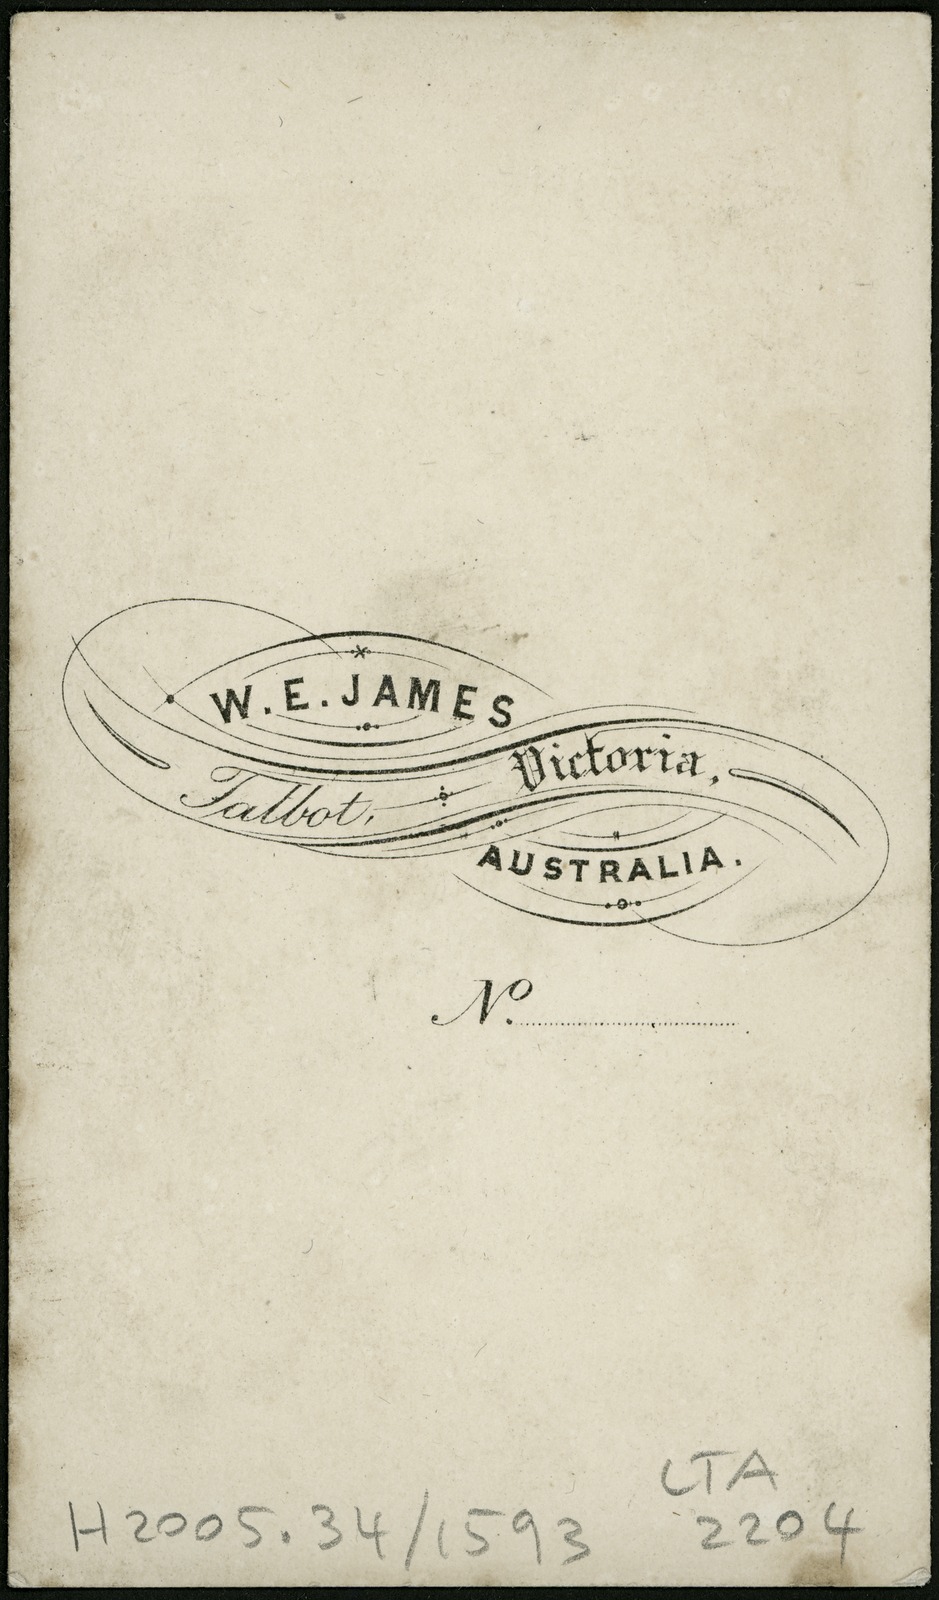 W. E. JAMES
Talbot, Victoria,
AUSTRALIA.
No.
LTA
H2005.34/1593 2204